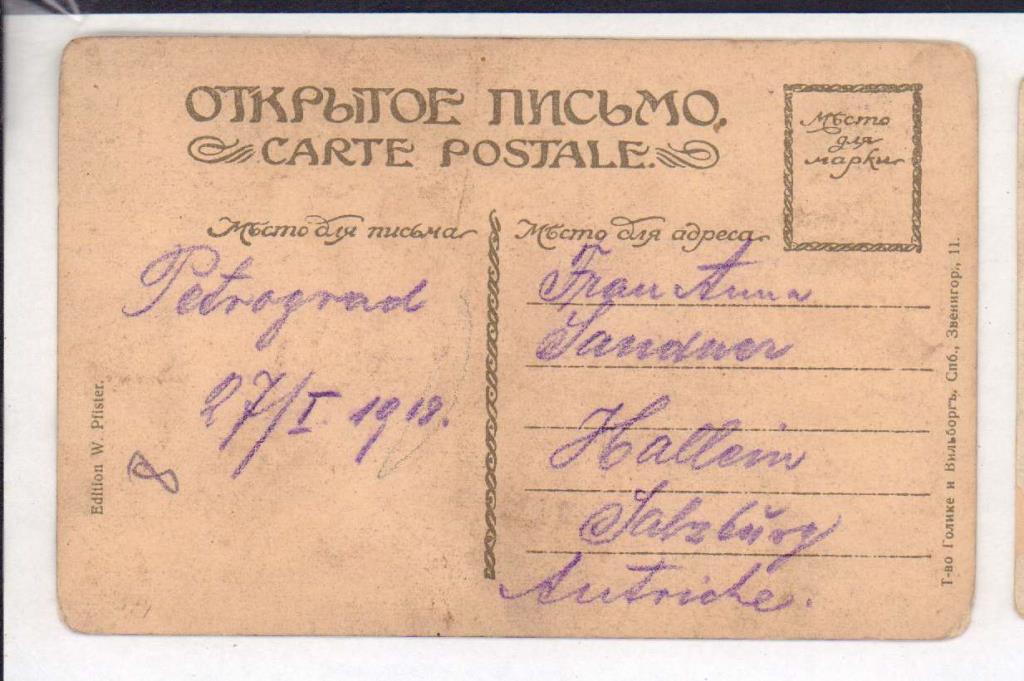 ОТКРЫТОЕ ПИСЬМО.
CARTE POSTALE.
Мѣсто для марки
Мѣсто для письма
Мѣсто для адреса
Petrograd
27/I. 1918.
8
Frau Anna
Sandner
Hallein
Salzburg
Autriche.
Edition W. Pfister.
Т-во Голике и Вильборгъ. Спб., Звенигор., 11.